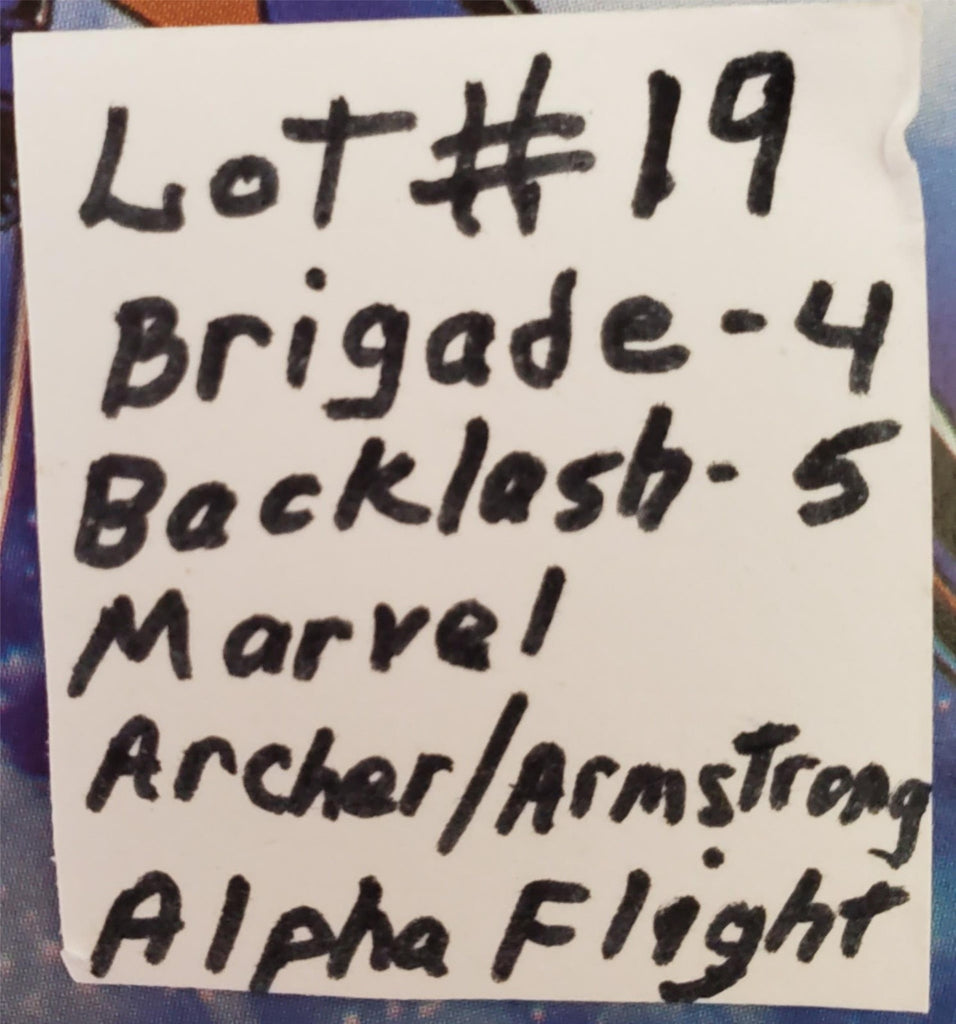 Lot # 19
Brigade - 4
Backlash - 5
Marvel
Archer/Armstrong
Alpha Flight